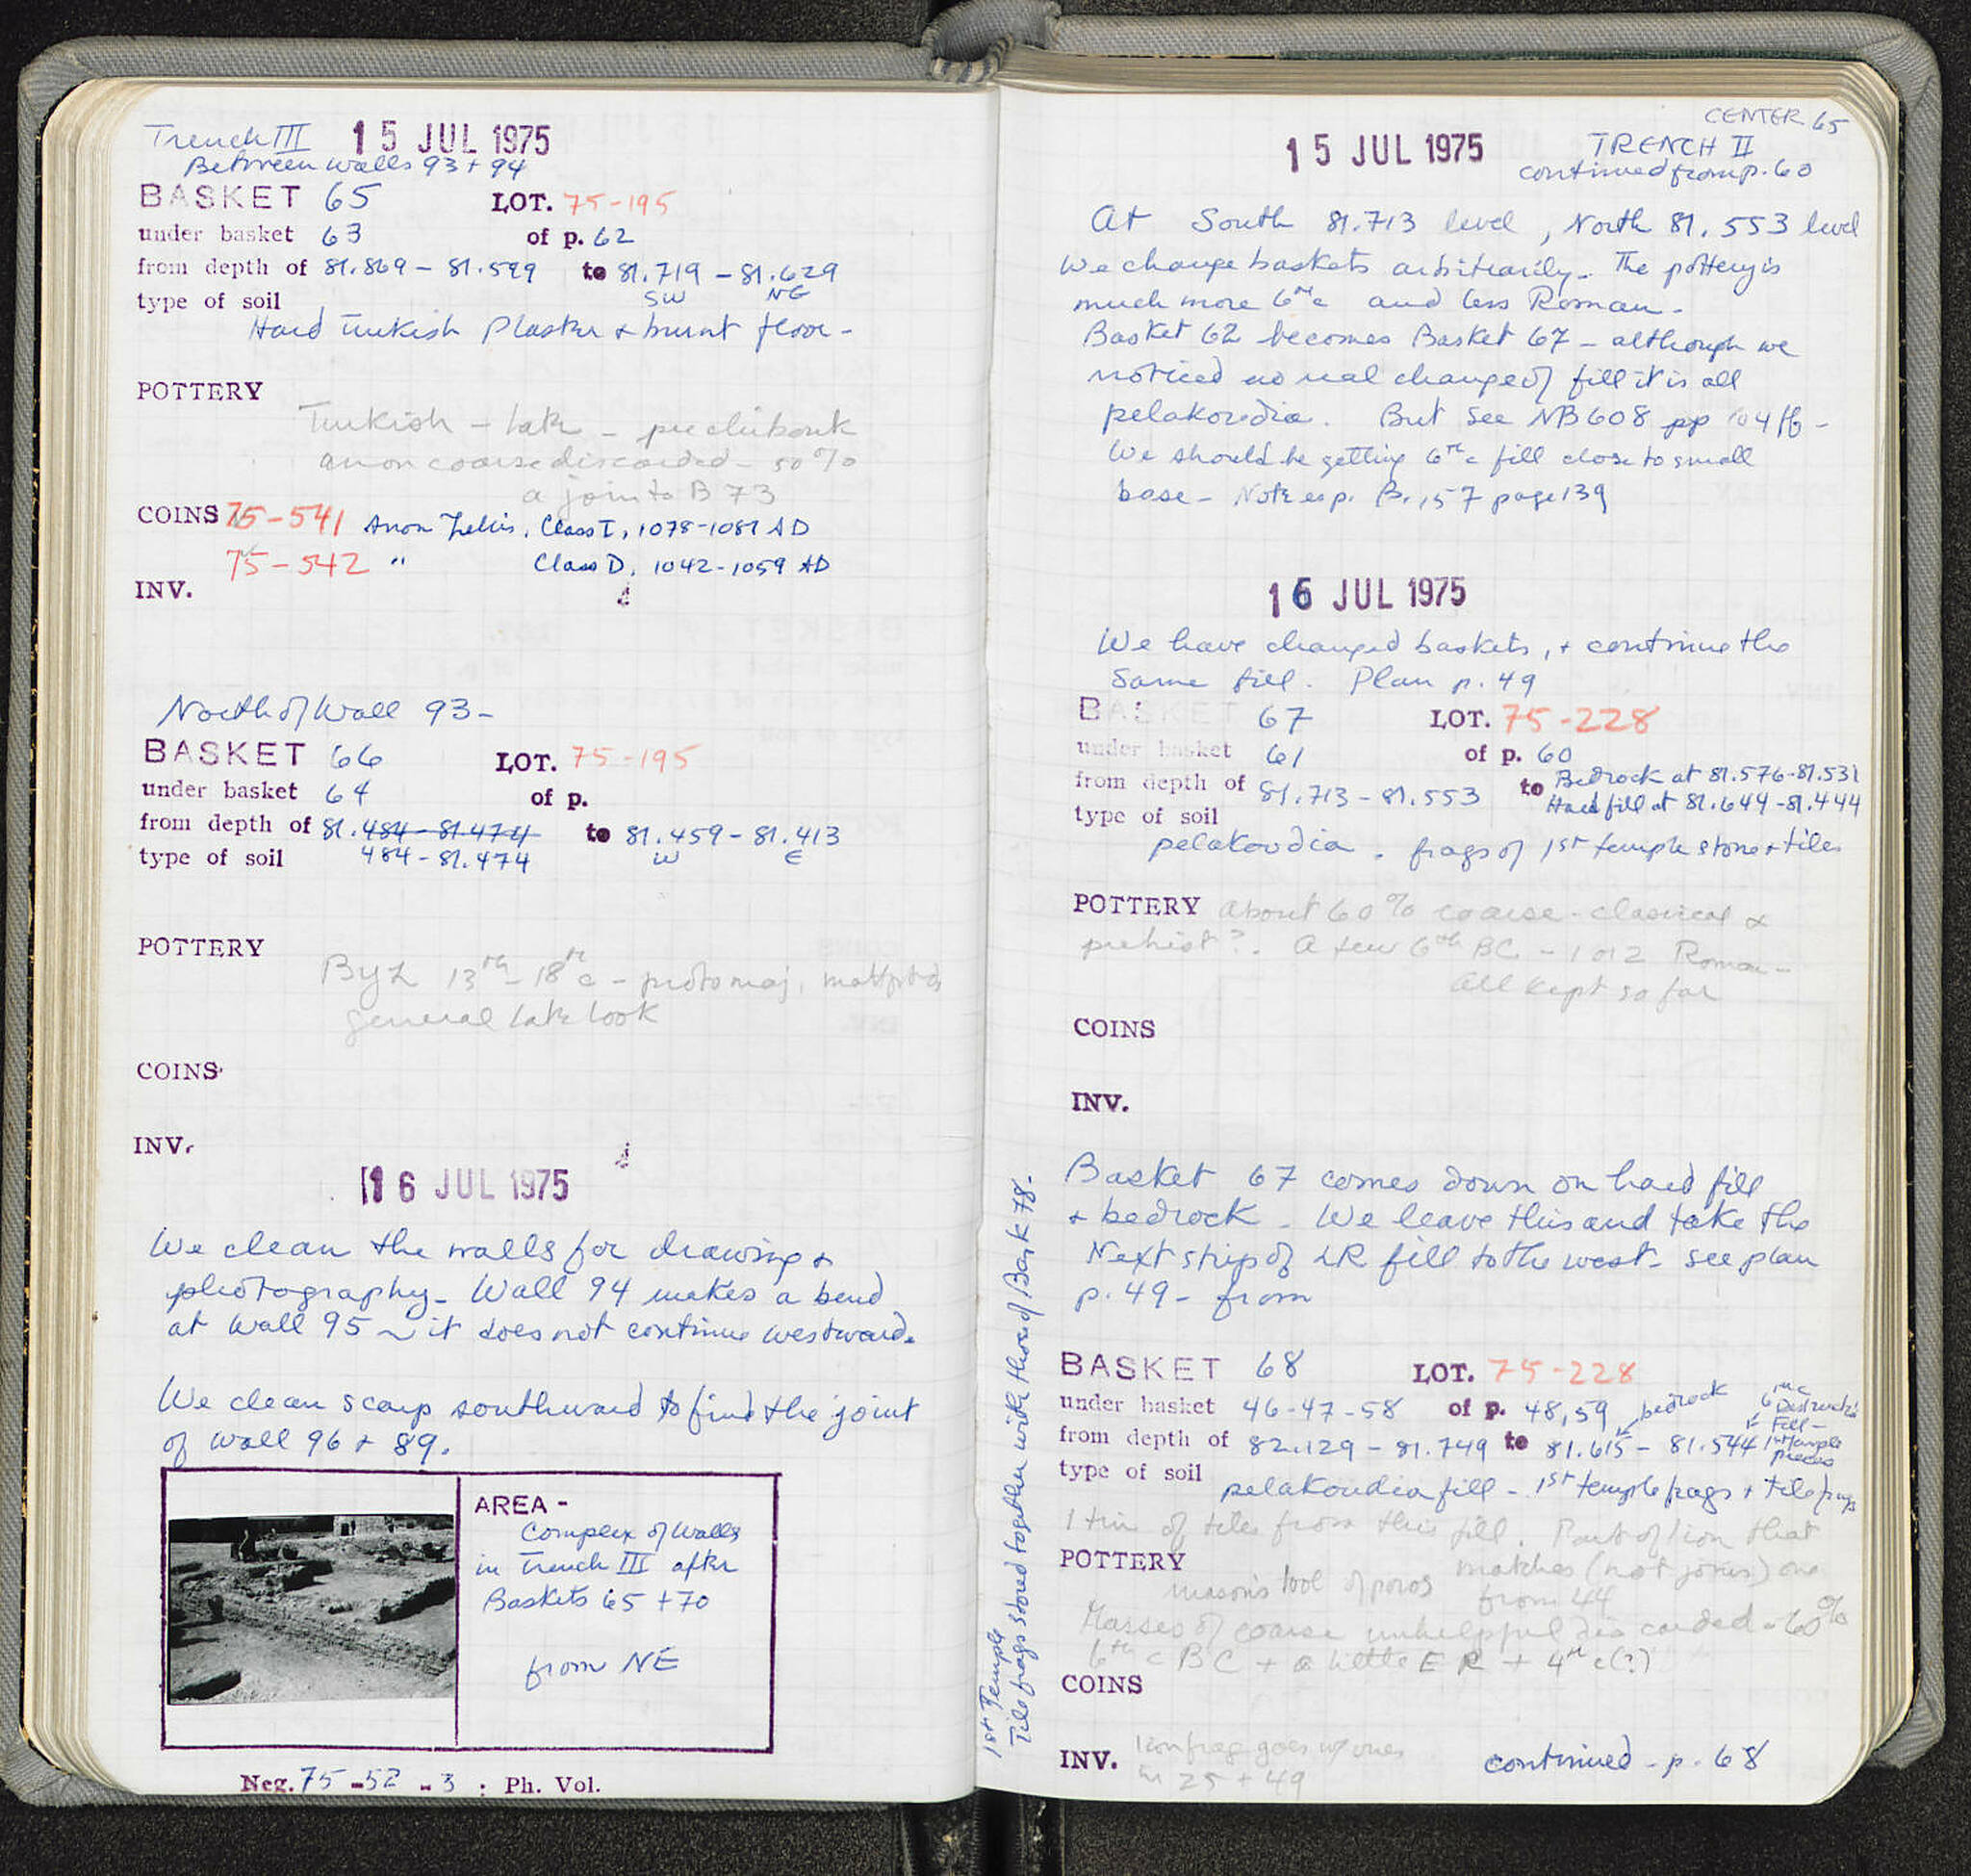 Trench III 15 JUL 1975
Between walls 93 + 94
BASKET 65 LOT. 75-195
under basket 63 of p. 62
from depth of 81.869 - 81.599 to 81.719 - 81.629
SW NE
type of soil
Hard Turkish Plaster + burnt floor -
POTTERY
Turkish - late -
anon coarse discarded - 50%
a join to B 73
COINS 75-541 Anon Follis, Class I, 1078-1081 AD
75-542 " Class D, 1042-1059 AD
INV.
North of Wall 93 -
BASKET 66 LOT. 75-195
under basket 64 of p.
from depth of 81.484 - 81.474 to 81.459 - 81.413
type of soil 484 - 81.474 W E
POTTERY
Byz 13th - 18th c - protomaj, mattptd
general late look
COINS
INV.
16 JUL 1975
We clean the walls for drawing +
photography - Wall 94 makes a bend
at Wall 95 ~ it does not continue westward.
We clean scarp southward to find the joint
of Wall 96 + 89.
AREA -
Complex of Walls
in Trench III after
Baskets 65 + 70
from NE
Neg. 75-52-3 : Ph. Vol.
CENTER 65
15 JUL 1975 TRENCH II
continued from p. 60
At South 81.713 level, North 81.553 level
We change baskets arbitrarily - The pottery is
much more 6th c and less Roman -
Basket 62 becomes Basket 67 - although we
noticed no real change of fill it is all
pelakoudia. But see NB 608 pp 104 ff -
We should be getting 6th c fill close to small
base - Note esp. B. 157 page 139
16 JUL 1975
We have changed baskets, + continue the
same fill. Plan p. 49
BASKET 67 LOT. 75-228
under basket 61 of p. 60
from depth of 81.713 - 81.553 to Bedrock at 81.576-81.531
Hard fill at 81.644-81.444
type of soil
pelakoudia. frags of 1st temple stone + tiles
POTTERY about 60% coarse - classical +
prehist?. A few 6th BC - 1 or 2 Roman -
All kept so far
COINS
INV.
Basket 67 comes down on hard fill
+ bedrock - We leave this and take the
Next strip of LR fill to the west - see plan
p. 49 - from
BASKET 68 LOT. 75-228
under basket 46-47-58 of p. 48, 59 bedrock
6th c
Fill -
1st temple
pieces
from depth of 82.129 - 81.749 to 81.615 - 81.544
type of soil pelakoudia fill - 1st temple frags + tile frags
1 tin of tiles from this fill. Part of lion that
POTTERY matches (not joins) one
masons tool of poros from 44
Masses of coarse unhelpful discarded - 60%
6th c BC + a little ER + 4th c (?)
COINS
INV. lion frag goes w/ ones
in 25 + 49
continued - p. 68
1st Temple
Tile frags stored together with those of Bask 78.